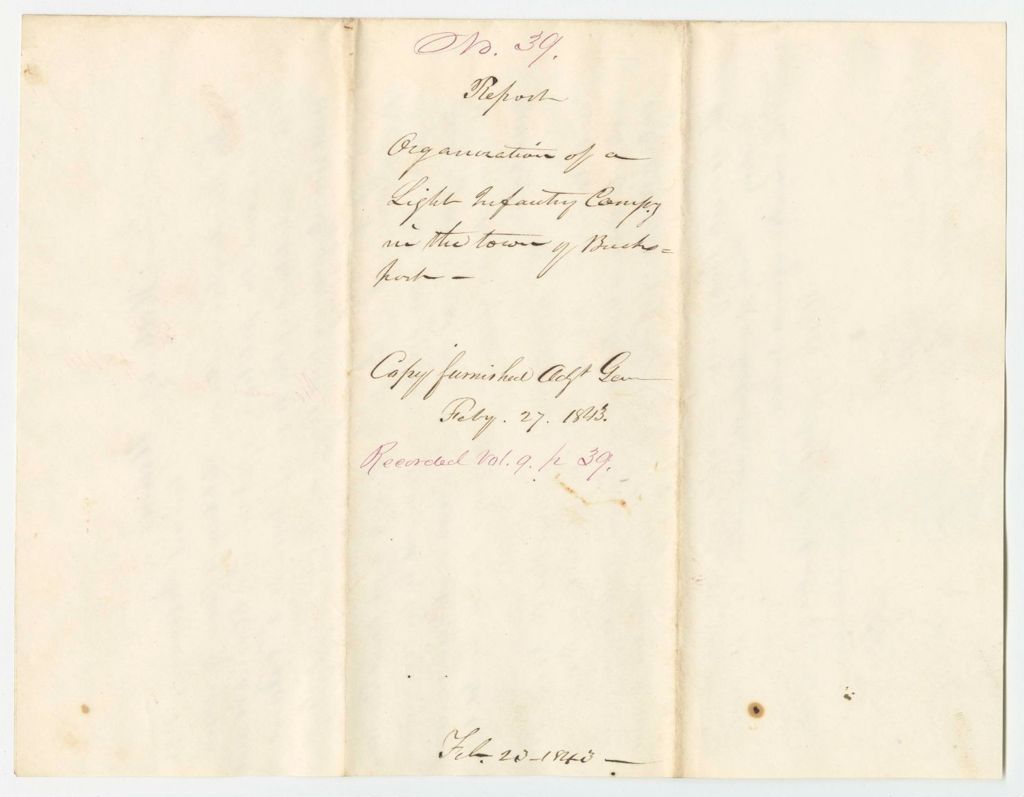 No. 39.
Report
Organization of a
Light Infantry Compy
in the town of Bucks=
port –
Copy furnished Adjt Gen
Feby. 27. 1843.
Recorded Vol. 9. p 39.
Feb. 23 – 1843 –